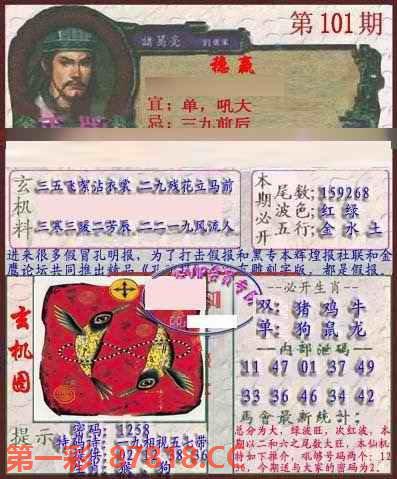 第101期
諸葛亮
稳赢
宜：单，吼大
忌：三九前后
玄机料
三五飞絮沾衣裳 二九残花立马前
三寒三暖二芳辰 二二一九风流人
本期必开
尾数;159268
波色;红 绿
五行;金 水 土
进来很多假冒孔明报,为了打击假报和黑专本辉煌报社联和金
鹰论坛共同推出精品
都是假报.
玄机图
必开生肖
双: 猪 鸡 牛
单: 狗 鼠 龙
内部泄码
11 47 01 37 49
33 36 46 34 42
馬會最新统计:
总分为大，绿波旺，次红波，本
期以二和六之尾数大旺，本仙机
特如下推介，吼够号码两个：12
36，今期送与大家的密码为2.
提示
密码: 1258
特码诗: 一九相视五七带
第一彩.87818.CC